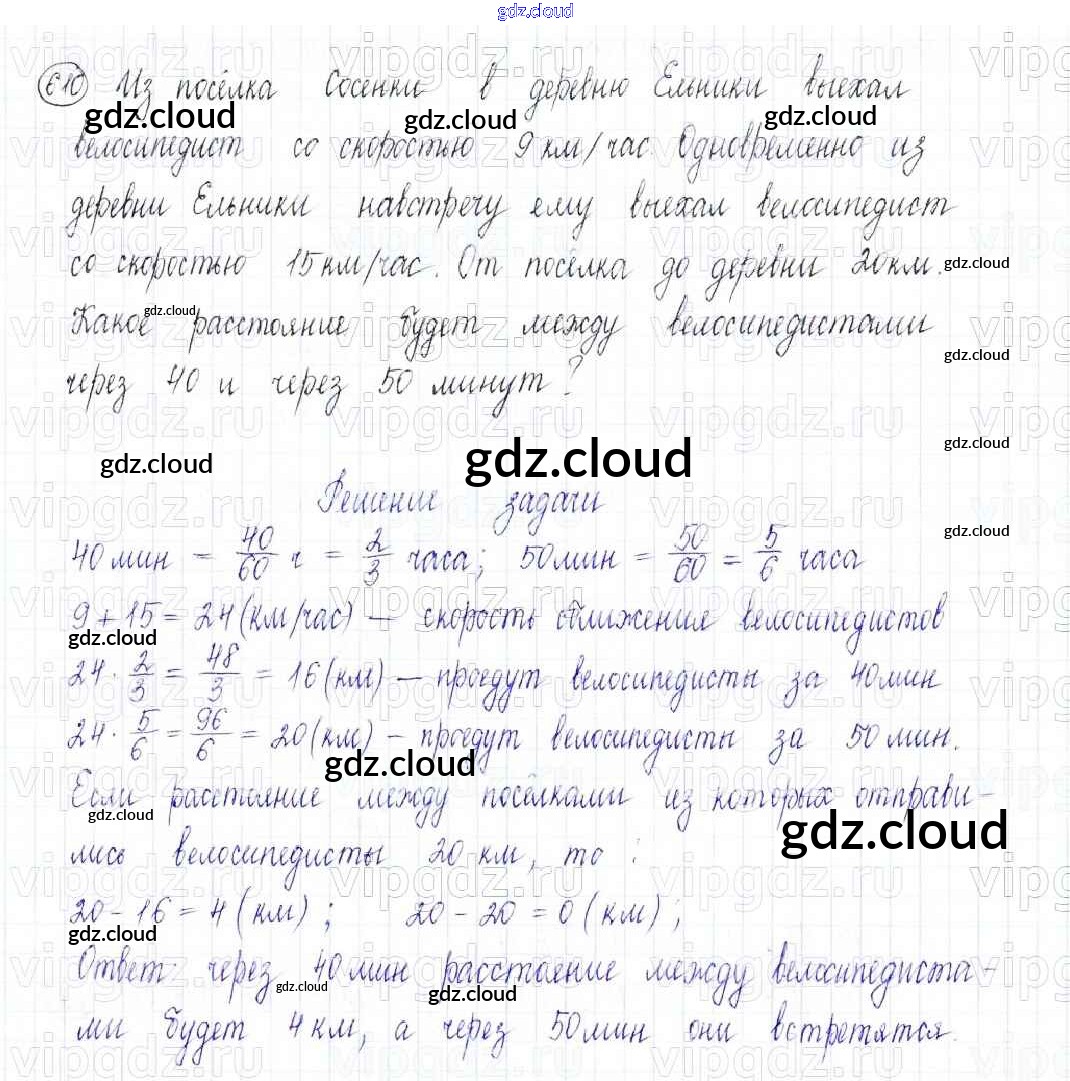 gdz.cloud
610 Из посёлка Сосенки в деревню Ельники выехал
gdz.cloud gdz.cloud gdz.cloud
велосипедист со скоростью 9 км/час. Одновременно из
деревни Ельники навстречу ему выехал велосипедист
со скоростью 15 км/час. От посёлка до деревни 20 км.
gdz.cloud
gdz.cloud
Какое расстояние будет между велосипедистами
gdz.cloud
через 40 и через 50 минут?
gdz.cloud
gdz.cloud gdz.cloud
Решение задачи
gdz.cloud
40 мин = 40/60 ч = 2/3 часа; 50 мин = 50/60 = 5/6 часа
9 + 15 = 24 (км/час) — скорость сближения велосипедистов
gdz.cloud
24 · 2/3 = 48/3 = 16 (км) — проедут велосипедисты за 40 мин
24 · 5/6 = 96/6 = 20 (км) — проедут велосипедисты за 50 мин.
gdz.cloud
Если расстояние между посёлками из которых отправи-
gdz.cloud gdz.cloud
лись велосипедисты 20 км, то :
20 - 16 = 4 (км) ; 20 - 20 = 0 (км) ;
gdz.cloud
Ответ: через 40 мин расстояние между велосипедиста-
gdz.cloud gdz.cloud
ми будет 4 км, а через 50 мин они встретятся.
vipgdz.ru